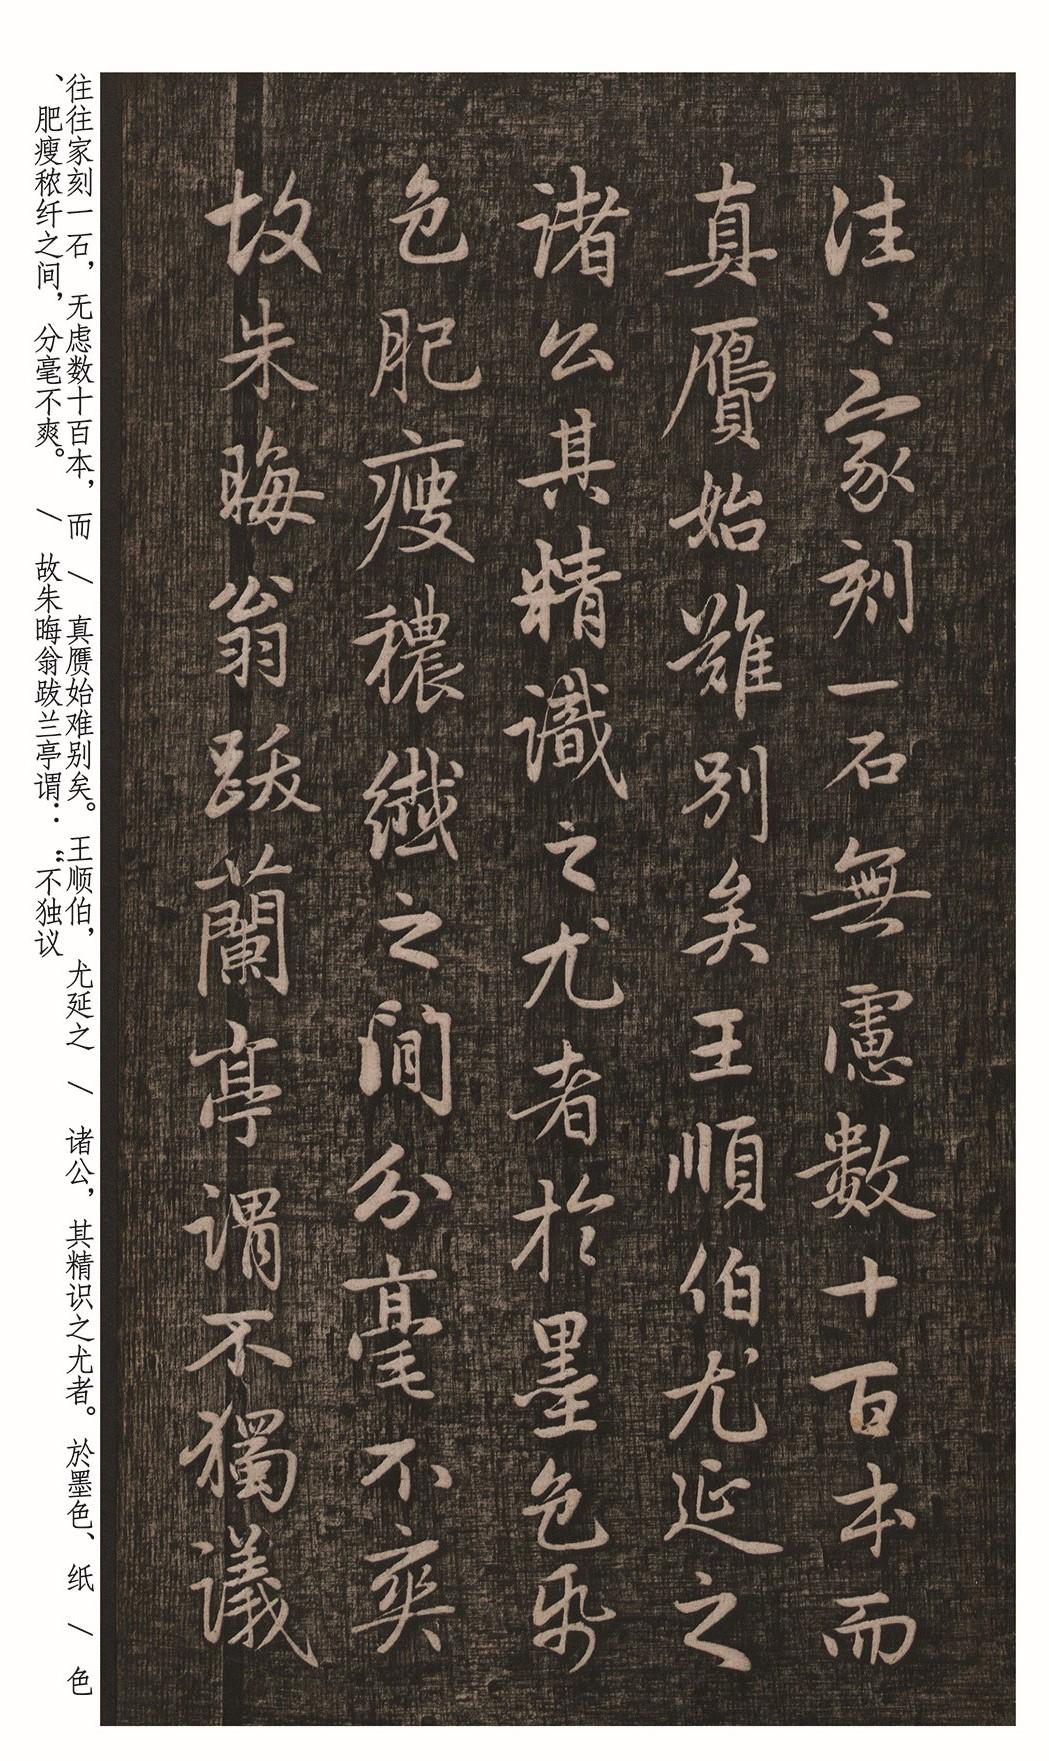 往〻家刻一石無慮數十百本而
真贋始難別矣王順伯尤延之
諸公其精識之尤者於墨色帋
色肥瘦穠纖之間分毫不爽
故朱晦翁跋蘭亭謂不獨議
往往家刻一石，无虑数十百本，而 / 真赝始难别矣。王顺伯，尤延之 / 诸公，其精识之尤者。於墨色、纸 / 色
、肥瘦秾纤之间，分毫不爽。 / 故朱晦翁跋兰亭谓：“不独议